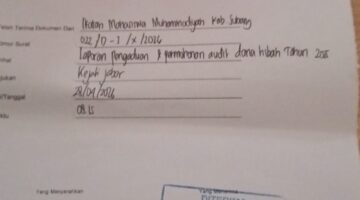 Telah Terima Dokumen Dari Ikatan Mahasiswa Muhammadiyah Kab Subang
Nomor Surat 022 / D-I / X / 2026
Laporan pengaduan & permohonan audit dana hibah Tahun
Kejati Jabar
/Tanggal 28/04/2026
08.15
Yang Menyerahkan
Yang Menerima